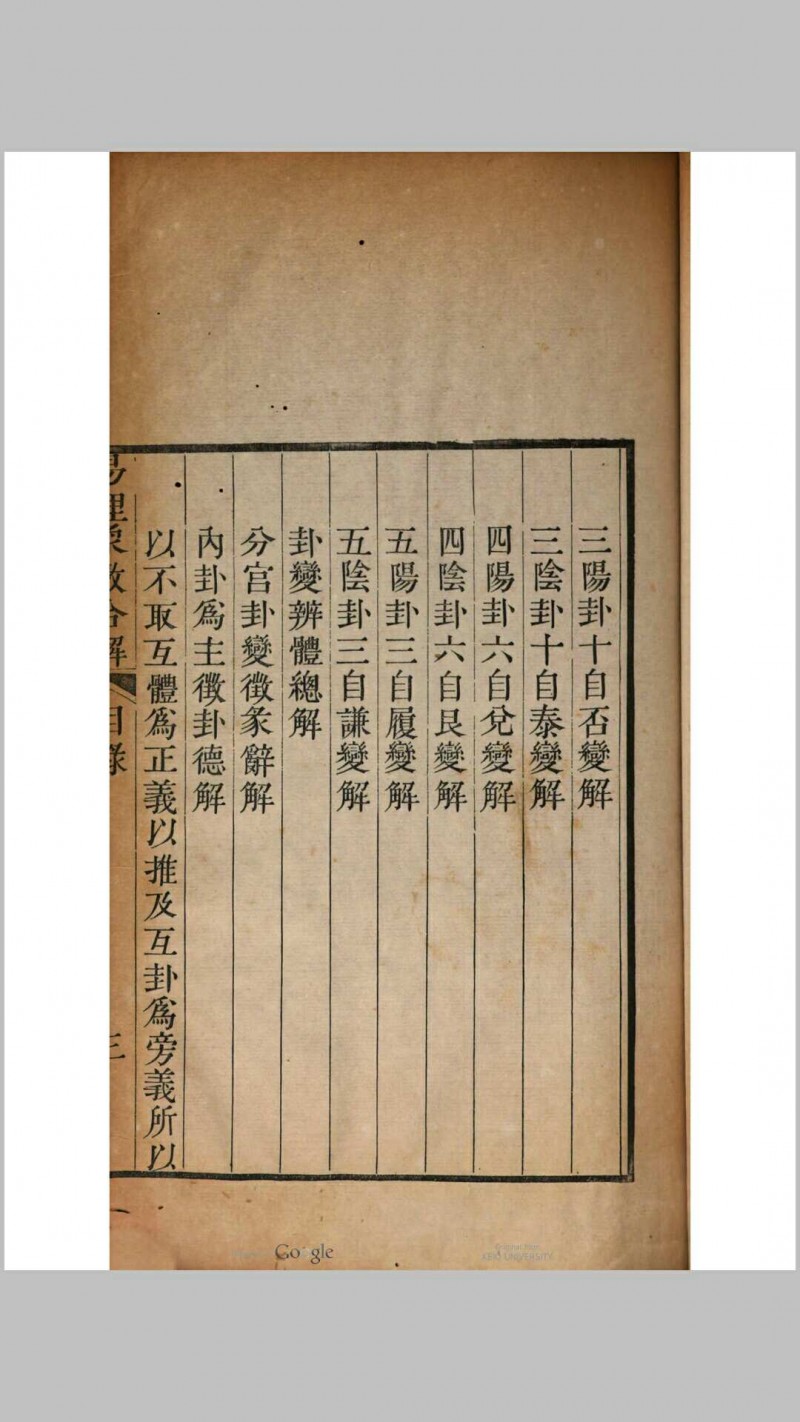 三陽卦十自否變解
三陰卦十自泰變解
四陽卦六自兌變解
四陰卦六自艮變解
五陽卦三自履變解
五陰卦三自謙變解
卦變辨體總解
分宮卦變徵彖辭解
內卦爲主徵卦德解
以不取互體爲正義以推及互卦爲旁義所以
易理象數合解 目錄 三
Google
KEIO UNIVERSITY